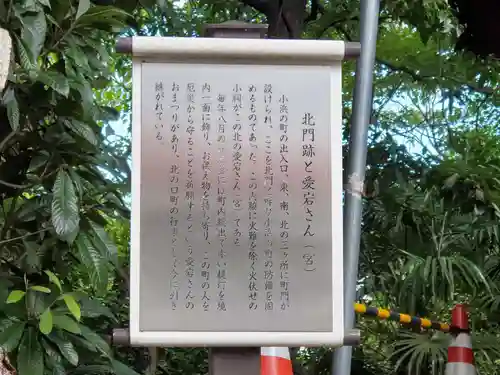 北門跡と愛宕さん(宮)
小浜の町の出入口、東、南、北の三ヶ所に町門が
設けられ、ここを北門と呼び小浜の町の防備を固
めるものであった。この土壇に火難を除く火伏せの
小祠がこの北の愛宕さん(宮)である。
毎年八月の
町内総出で赤い提灯を境
内一面に飾り、お供え物を持ち寄り、この町の人を
厄災から守ることを祈願するという愛宕さんの
おまつりがあり、北の口町の行事として今に引き
継がれている。